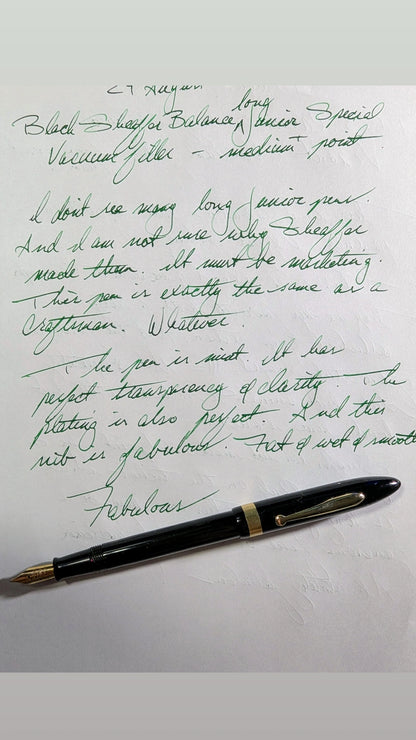 29 August
Black Sheaffer Balance long Junior Special
Vacuum filler - medium point.
I don't see many long Junior pens.
And I am not sure why Sheaffer
made them. It must be marketing.
This pen is exactly the same as a
Craftsman. Whatever.
The pen is mint. It has
perfect transparency & clarity. The
plating is also perfect. And this
nib is fabulous. Fat & wet & smooth
Fabulous